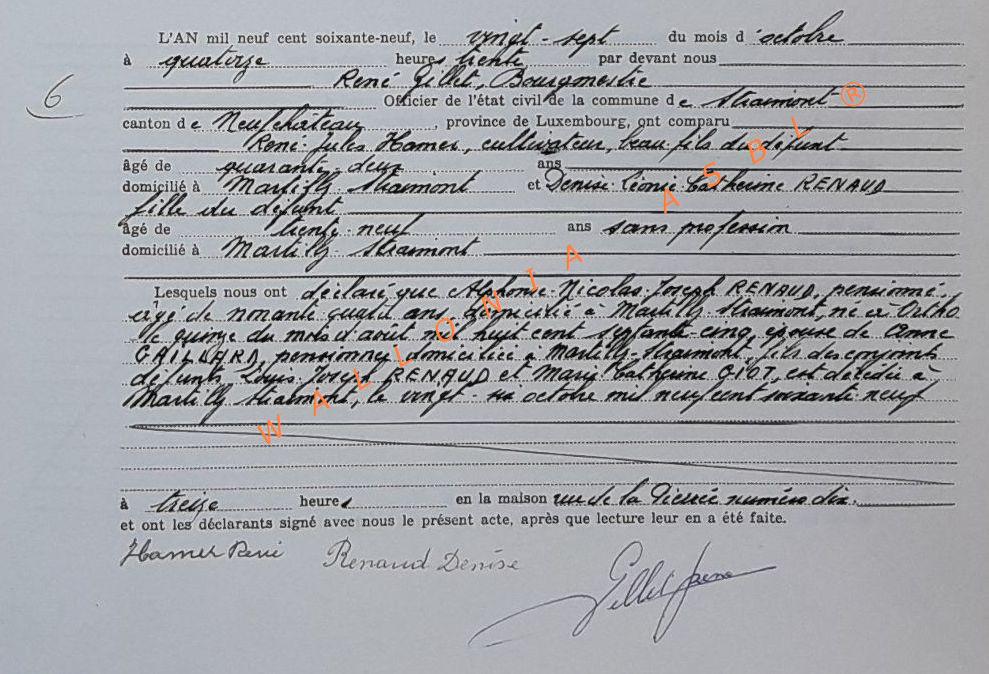 L'AN mil neuf cent soixante-neuf, le vingt-sept du mois d'octobre
à quatorze heures trente par devant nous
René Gillet, Bourgmestre
6
Officier de l'état civil de la commune de Straimont
canton de Neufchâteau, province de Luxembourg, ont comparu
René Jules Hamer, cultivateur, beau-fils du défunt
âgé de quarante-deux ans
domicilié à Martilly-Straimont et Denise Léonie Catherine RENAUD
fille du défunt
âgé de trente-neuf ans sans profession
domicilié à Martilly-Straimont
Lesquels nous ont déclaré que Alphonse Nicolas Joseph RENAUD, pensionné
âgé de nonante quatre ans, domicilié à Martilly-Straimont, né à Ortho
le quinze du mois d'août mil huit cent septante-cinq, époux de Anne
GAILLARD, pensionnée domiciliée à Martilly-Straimont, fils des conjoints
défunts Louis Joseph RENAUD et Marie Catherine GIOT, est décédé à
Martilly-Straimont, le vingt-six octobre mil neuf cent soixante neuf
à treize heures en la maison rue de la numéro dix.
et ont les déclarants signé avec nous le présent acte, après que lecture leur en a été faite.
Hamer René Renaud Denise
Gillet René
WALLONIA ASBL ®